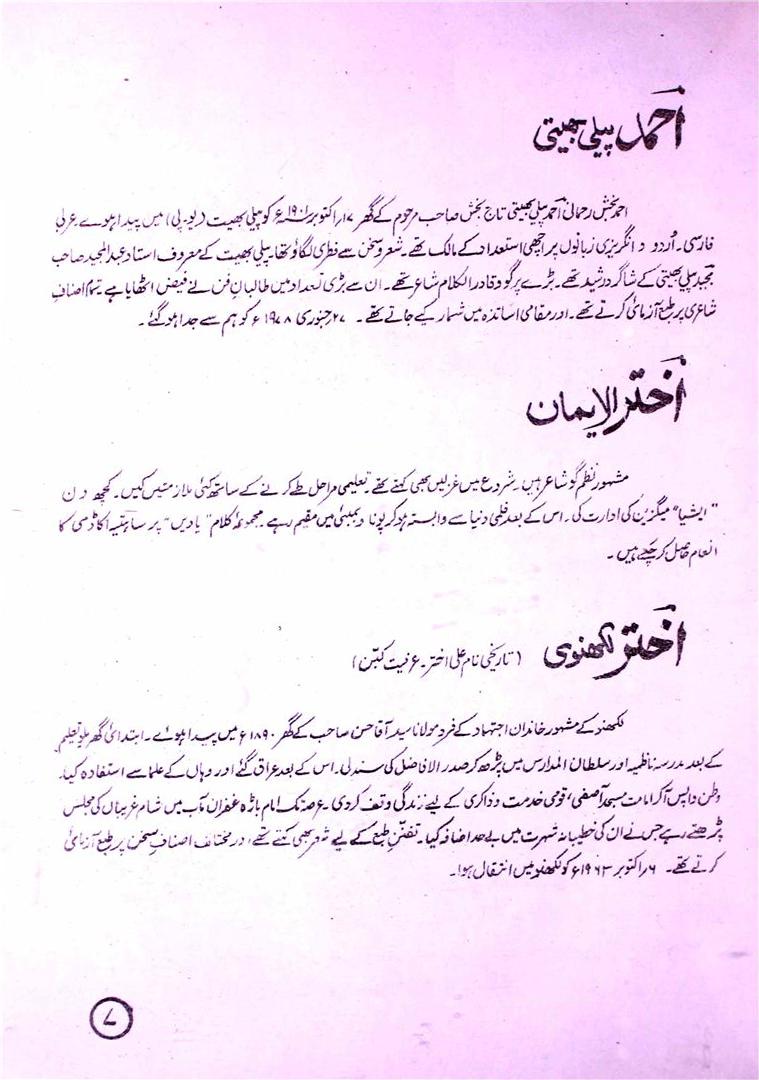 احمد پیلی بھیتی
احمد بخش رحمانی احمد پیلی بھیتی تاج بخش صاحب مرحوم کے گھر ۱۷؍اکتوبر ۱۹۰۱ء کو پیلی بھیت (یو۔پی) میں پیدا ہوے۔ عربی
فارسی۔ اُردو و انگریزی زبانوں پر اچھی استعداد کے مالک تھے۔ شعر و سخن سے فطری لگاؤ تھا۔ پیلی بھیت کے معروف استاد عبدالمجید صاحب
مجید پیلی بھیتی کے شاگرد رشید تھے۔ بڑے پرگو و قادر الکلام شاعر تھے۔ ان سے بڑی تعداد میں طالبانِ فن نے فیض اٹھایا ہے تمام اصنافِ
شاعری پر طبع آزمائی کرتے تھے۔ اور مقامی اساتذہ میں شمار کیے جاتے تھے۔ ۲۷ جنوری ۱۹۷۸ء کو ہم سے جدا ہو گئے۔
اختر الایمان
مشہور نظم گو شاعر ہیں۔ شروع میں غزلیں بھی کہتے تھے۔ تعلیمی مراحل طے کرنے کے ساتھ کئی ملازمتیں کیں۔ کچھ دن
"ایشیا" میگزین کی ادارت کی۔ اس کے بعد فلمی دنیا سے وابستہ ہو کر پونا و بمبئی میں مقیم رہے۔ مجموعۂ کلام "یادیں" پر ساہتیہ اکاڈمی کا
انعام حاصل کر چکے ہیں۔
اختر لکھنوی (تاریخی نام علی اختر۔ عرفیت کبّن)
لکھنو کے مشہور خاندان اجتہاد کے فرد مولانا سید آقا حسن صاحب کے گھر ۱۸۹۰ء میں پیدا ہوے۔ ابتدائی گھریلو تعلیم
کے بعد مدرسہ ناظمیہ اور سلطان المدارس میں پڑھ کر صدر الافاضل کی سند لی۔ اس کے بعد عراق گئے اور وہاں کے علما سے استفادہ کیا۔
وطن واپس آکر امامت مسجد آصفی، قومی خدمت و ذاکری کے لیے زندگی وقف کردی۔ عرصہ تک امام باڑہ غفران مآب میں شام غریباں کی مجلس
پڑھتے رہے جس نے ان کی خطیبانہ شہرت میں بے حد اضافہ کیا۔ تفننِ طبع کے لیے شعر بھی کہتے تھے اور مختلف اصنافِ سخن پر طبع آزمائی
کرتے تھے۔ ۶؍اکتوبر ۱۹۶۳ء کو لکھنو میں انتقال ہوا۔
۷